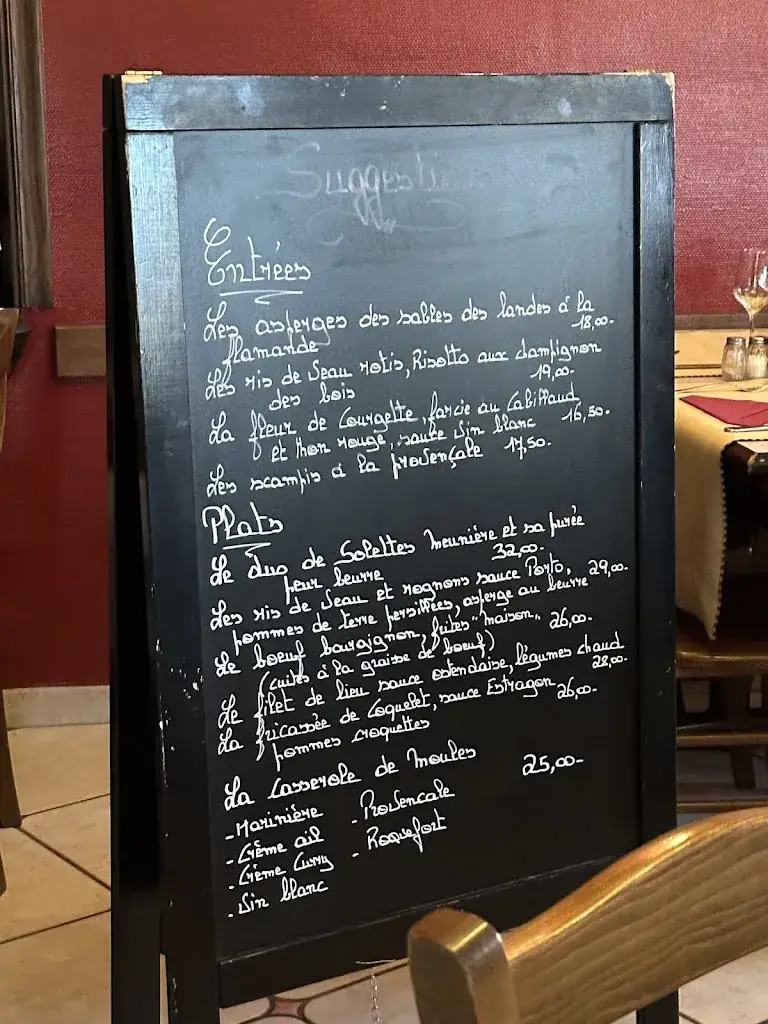 Suggestions
Entrées
Les asperges des sables des landes à la
18,00-
flamande
Les ris de Veau rotis, Risotto aux champignon
des bois 19,00-
La fleur de Courgette, farcie au Cabillaud
et thon rouge, sauce Vin blanc 16,50-
Les scampis à la provençale 17,50-
Plats
Le duo de Solettes Meunière et sa purée
pur beurre 32,00-
Les ris de Veau et rognons sauce Porto, 29,00-
pommes de terre persillées, asperge au beurre
Le boeuf bourgignon, frites "maison" 26,00-
(cuites à la graisse de boeuf)
Le filet de lieu sauce ostendaise, légumes chaud
28,00-
La fricassée de Coquelet, sauce Estragon 26,00-
pommes croquettes
La Casserole de Moules 25,00-
- Marinière - Provencale
- Crème ail - Roquefort
- Crème Curry
- Vin blanc